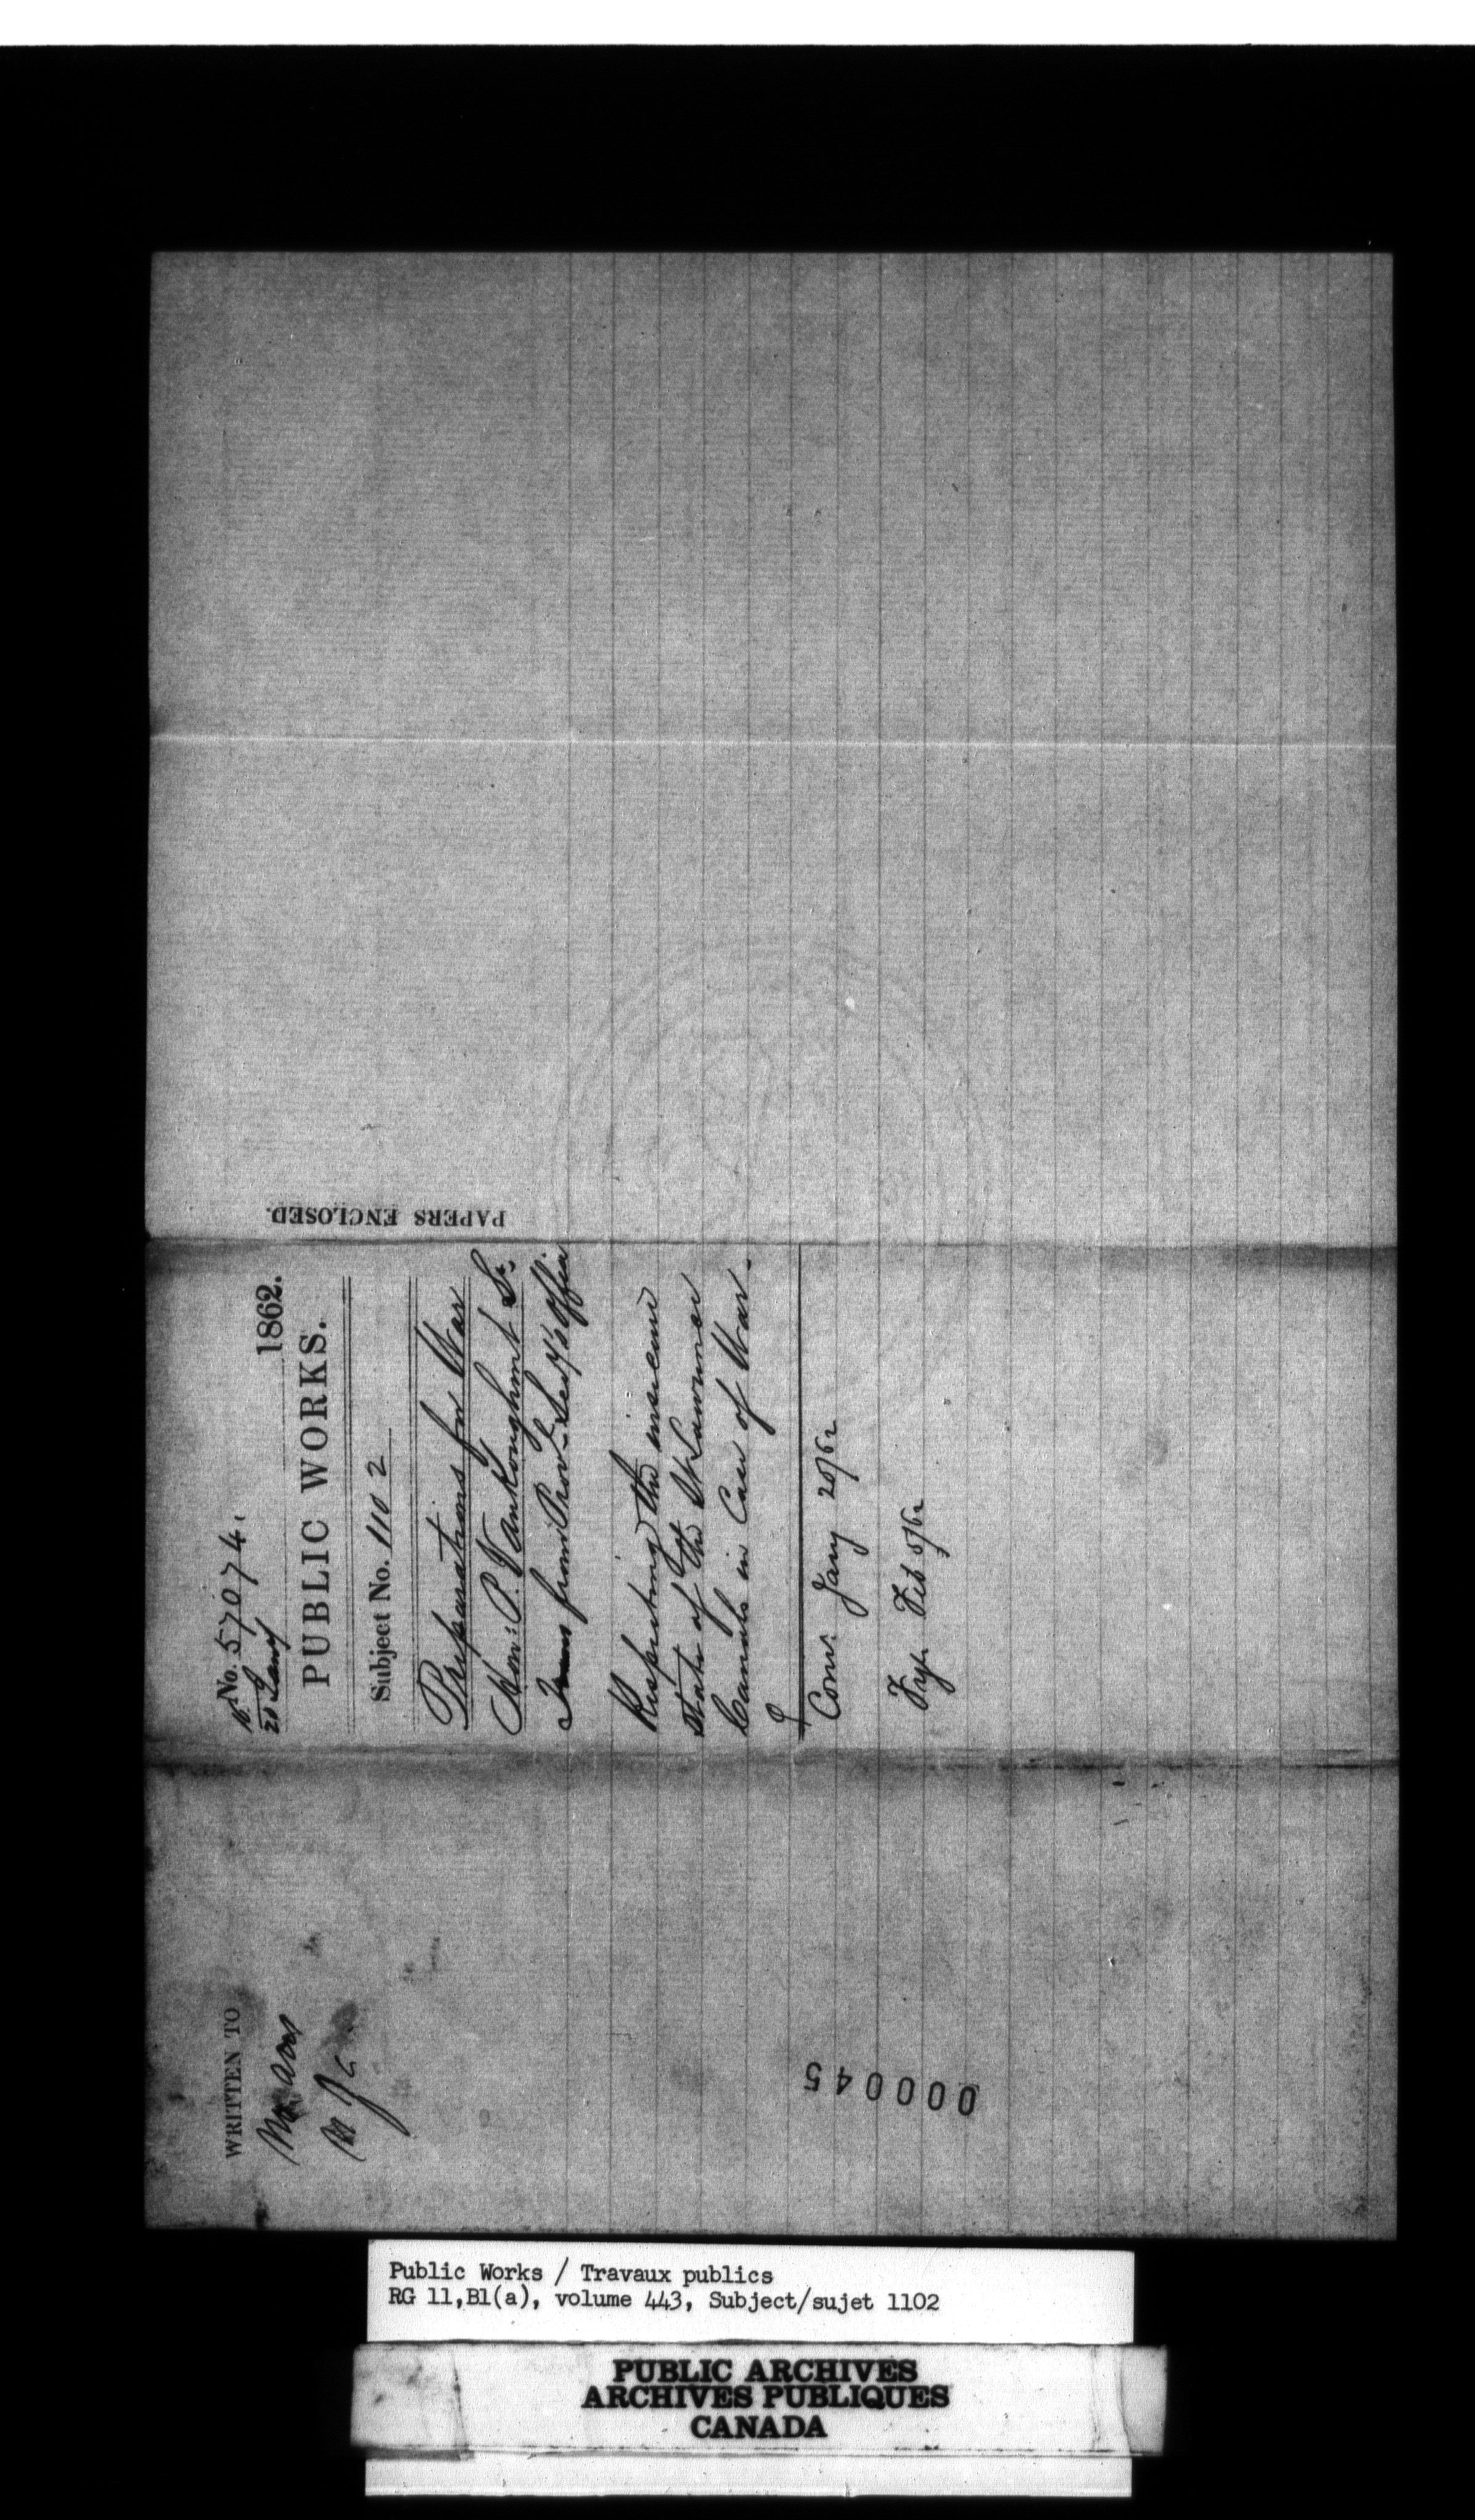 No. 57074.
20 Jany 1862.
PUBLIC WORKS.
Subject No. 1102
Preparations for War
Hon: P. Vankoughnet Sr.
Trans from Prov: Secy's Office
Respecting the insecure
state of the St Lawrence
Canals in Case of War.
Com: Jany 20/62
Fyl. Feb 5/62
PAPERS ENCLOSED.
WRITTEN TO
000045
Public Works / Travaux publics
RG 11,B1(a), volume 443, Subject/sujet 1102
PUBLIC ARCHIVES
ARCHIVES PUBLIQUES
CANADA